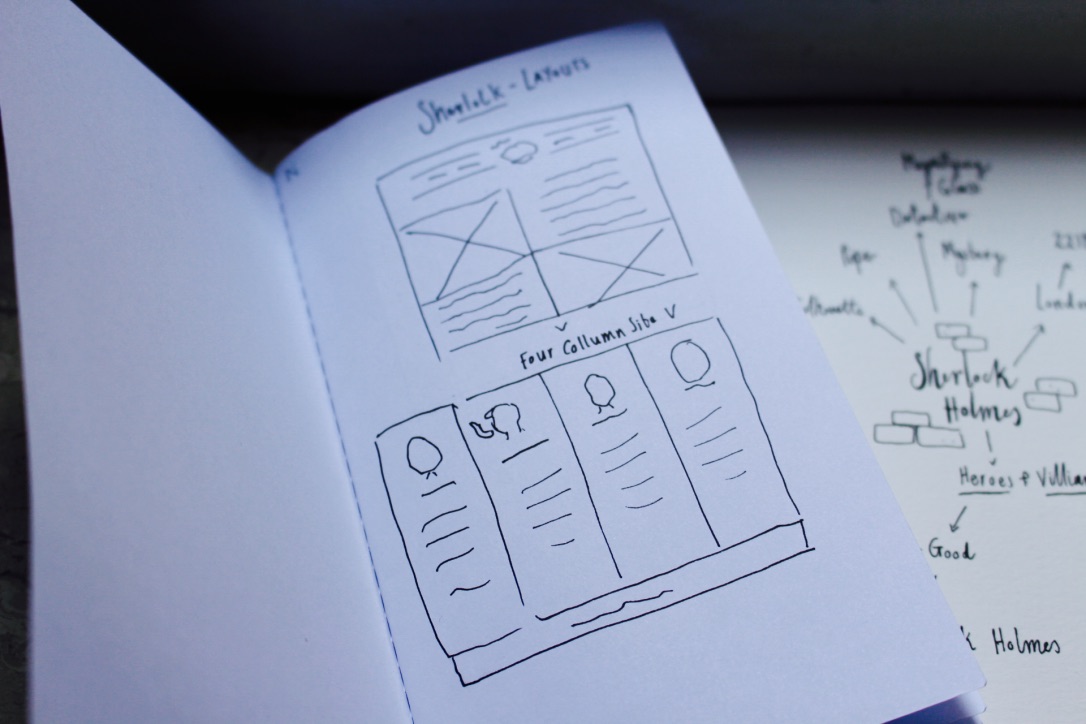 Sherlock - Layouts
Four Collumn Site
Magnifying
Glass
Detective
Pipe
Mystery
221B
Silhouette
London
Sherlock
Holmes
Heroes + Villia
Good
k Holmes